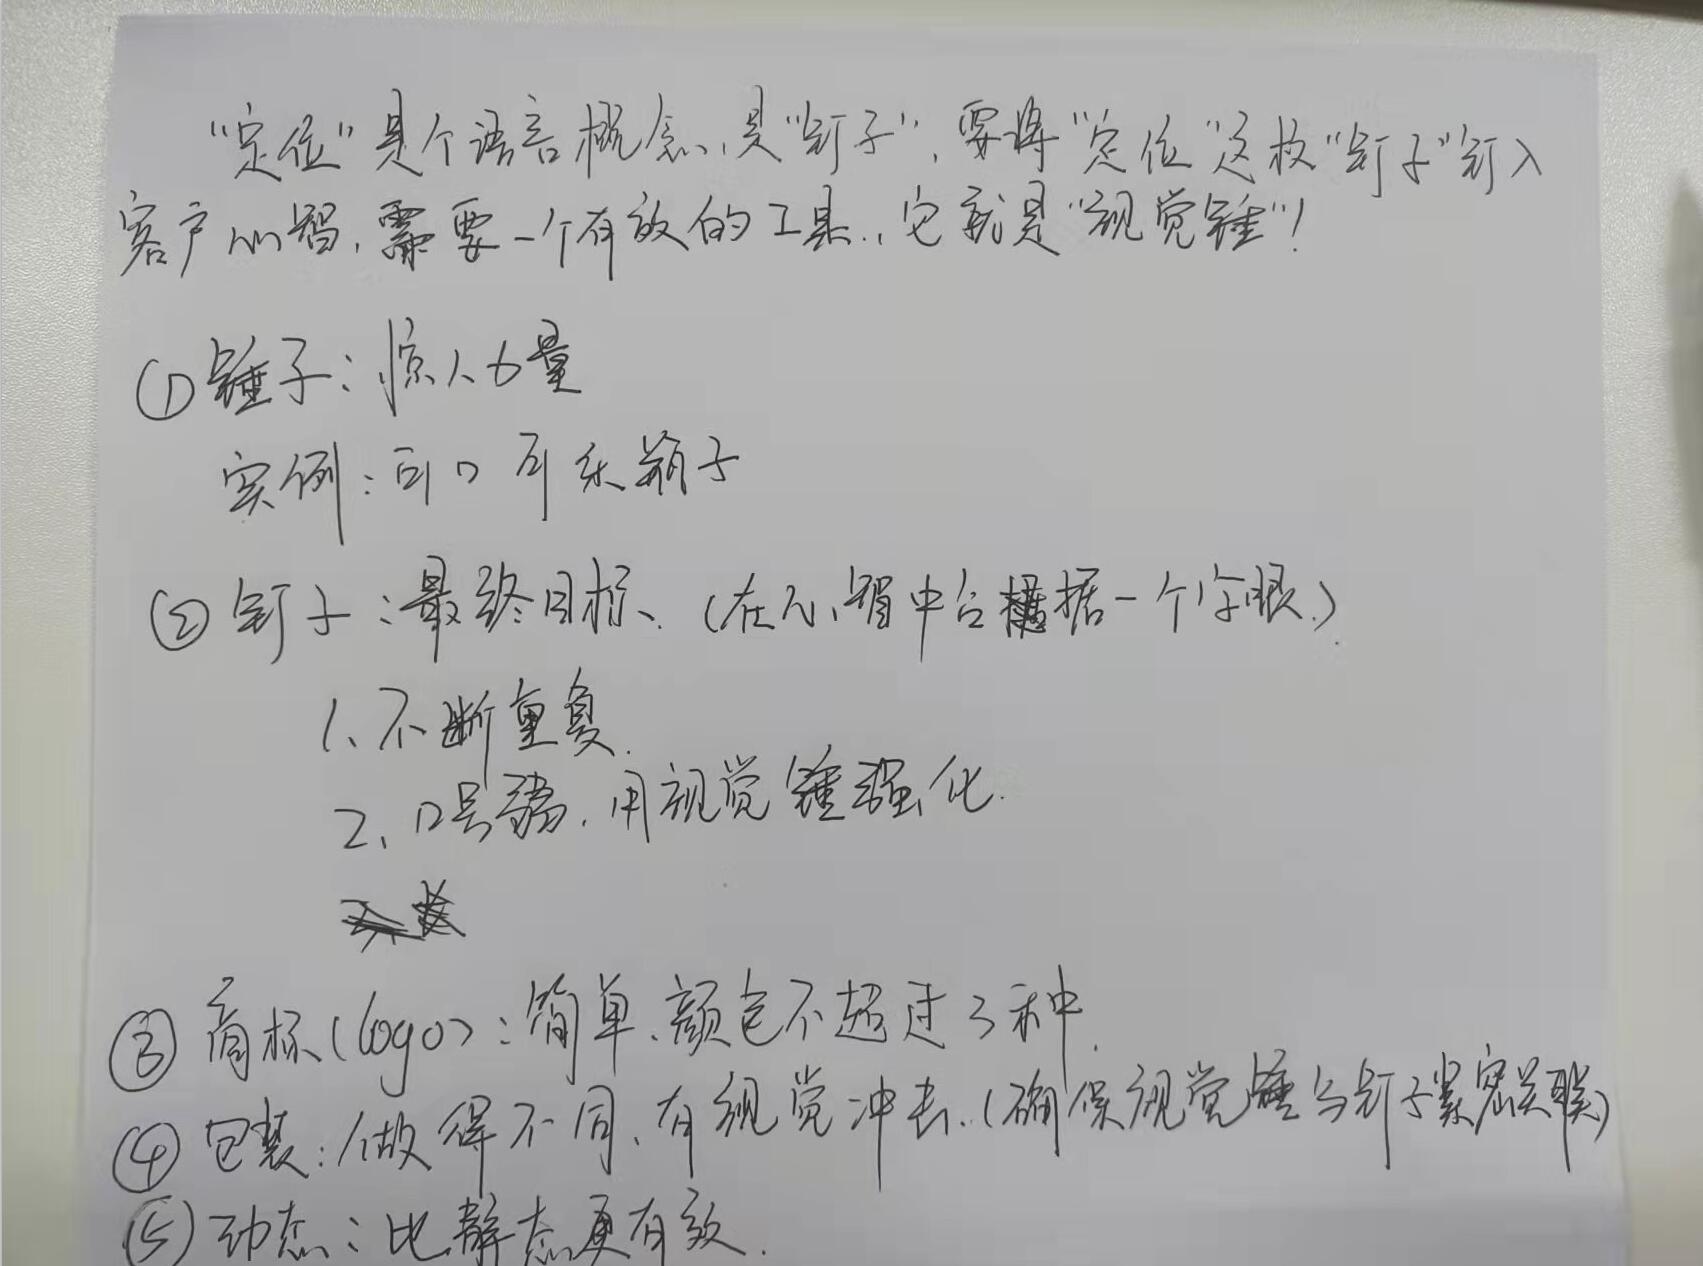 “定位”是个语言概念，是“钉子”，要将“定位”这枚“钉子”钉入
客户心智，需要一个有效的工具，它就是“视觉锤”！
①锤子：惊人力量
实例：可口可乐瓶子
②钉子：最终目标、（在心智中占据一个字眼）
1、不断重复.
2、口号，用视觉锤强化.
③商标(logo)：简单、颜色不超过3种.
④包装：做得不同、有视觉冲击.（确保视觉锤与钉子紧密关联）
⑤动态：比静态更有效.